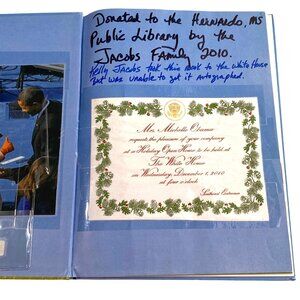 Donated to the Hernando, MS
Public Library by the
Jacobs Family 2010.
Kelly Jacobs took this book to the White House
but was unable to get it autographed.
Mrs. Michelle Obama
requests the pleasure of your company
at a Holiday Open House to be held at
The White House
on Wednesday, December 1, 2010
at four o'clock
Southeast Entrance